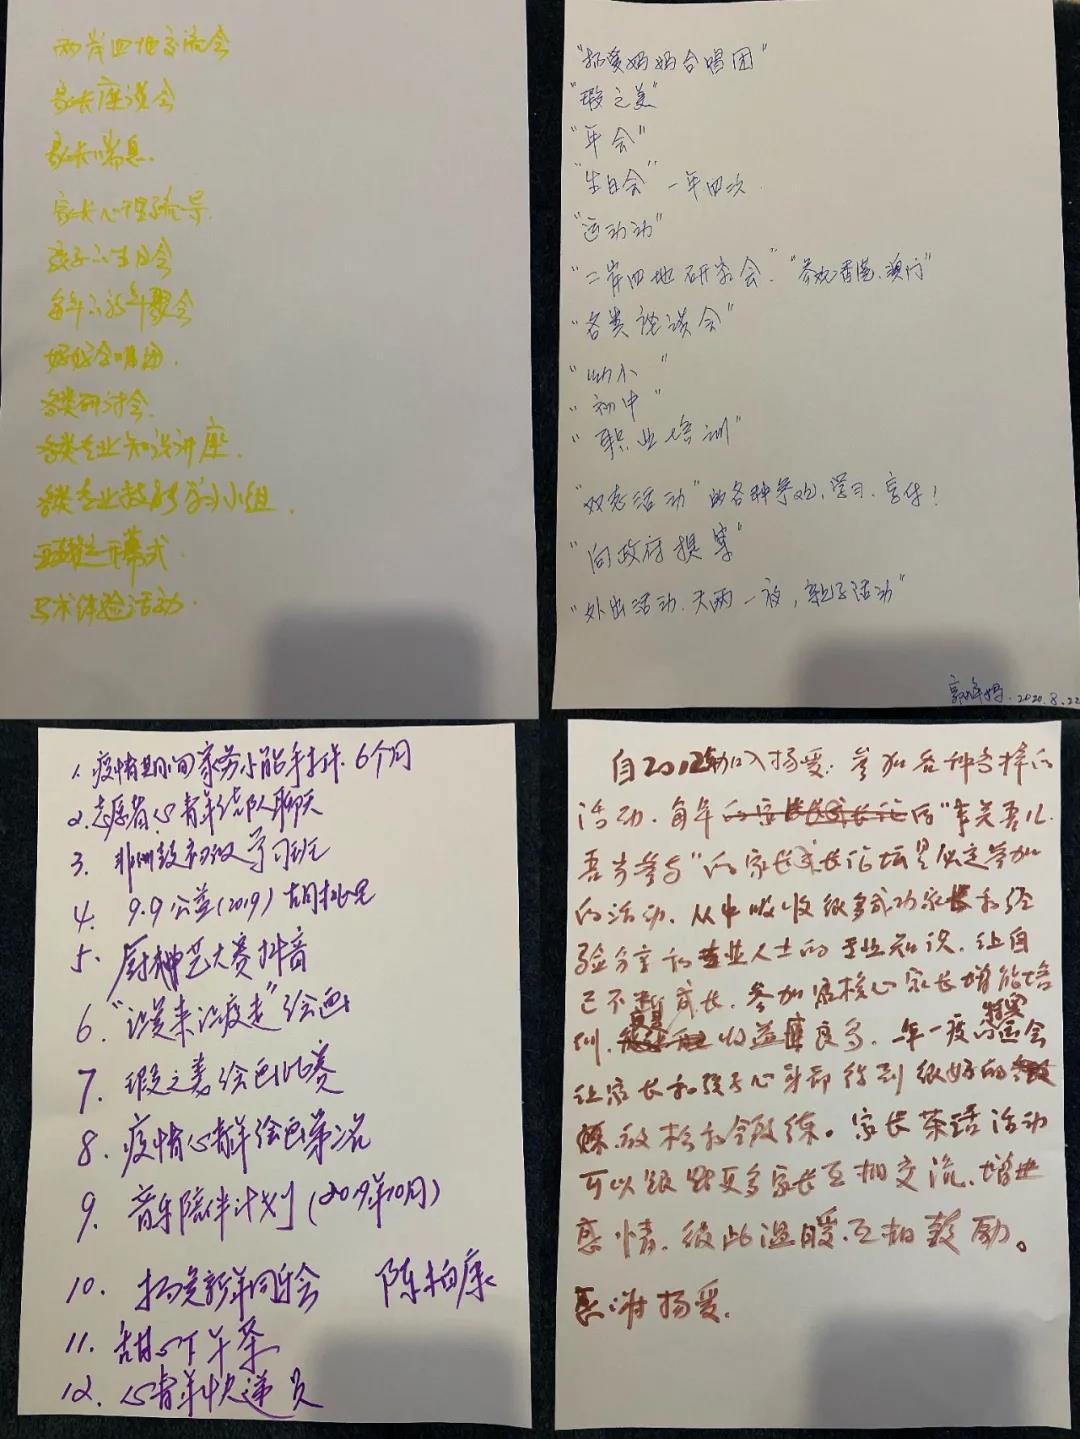 两岸四地交流会
家长座谈会
家长喘息.
家长心理 导.
孩子的生日会
每年的新年聚会
妈妈合唱团.
各类研讨会.
各类专业知识讲座.
各类专业技能学习小组.
开幕式.
马术体验活动.
"扬爱妈妈合唱团"
"瑕之美"
"年会"
"生日会" 一年四次.
"运动动"
"二岸四地研讨会." "参观香港、澳门"
"各类座谈会"
"幼小"
"初中"
"职业培训"
"双老活动"的各种参观、学习、宣传!
"向政府提案"
"外出活动.天两一夜,亲子活动"
2020.8.22
1. 疫情期间家务小能手打卡.6个月
2.志愿者心青年结队聊天
3. 非洲鼓初级学习班
4. 9.9公益(2019)胡桃里
5. 厨神艺大赛抖音
6."让爱来让疫走"绘画
7. 瑕之美绘画比赛
8. 疫情心青年绘画第二名
9. 音乐陪伴计划(2019年10月)
10. 扬爱新年同乐会 陈柏康
11. 甜心下午茶
12. 心青年快递员
自2012年加入扬爱.参加各种多样的
活动.每年的 "事关吾儿
吾当参与"的家长成长论坛是必定参加
的活动.从中吸收很多成功家长和经
验分享和专业人士的专业知识.让自
己不断成长.参加爱核心家长增能培
训. 收益良多.一年一度的特奥运会
让家长和孩子心身都得到很好的
放松和令锻练。家长茶话活动
可以跟更多家长互相交流.增进
感情.彼此温暖.互相鼓励。
感谢扬爱.